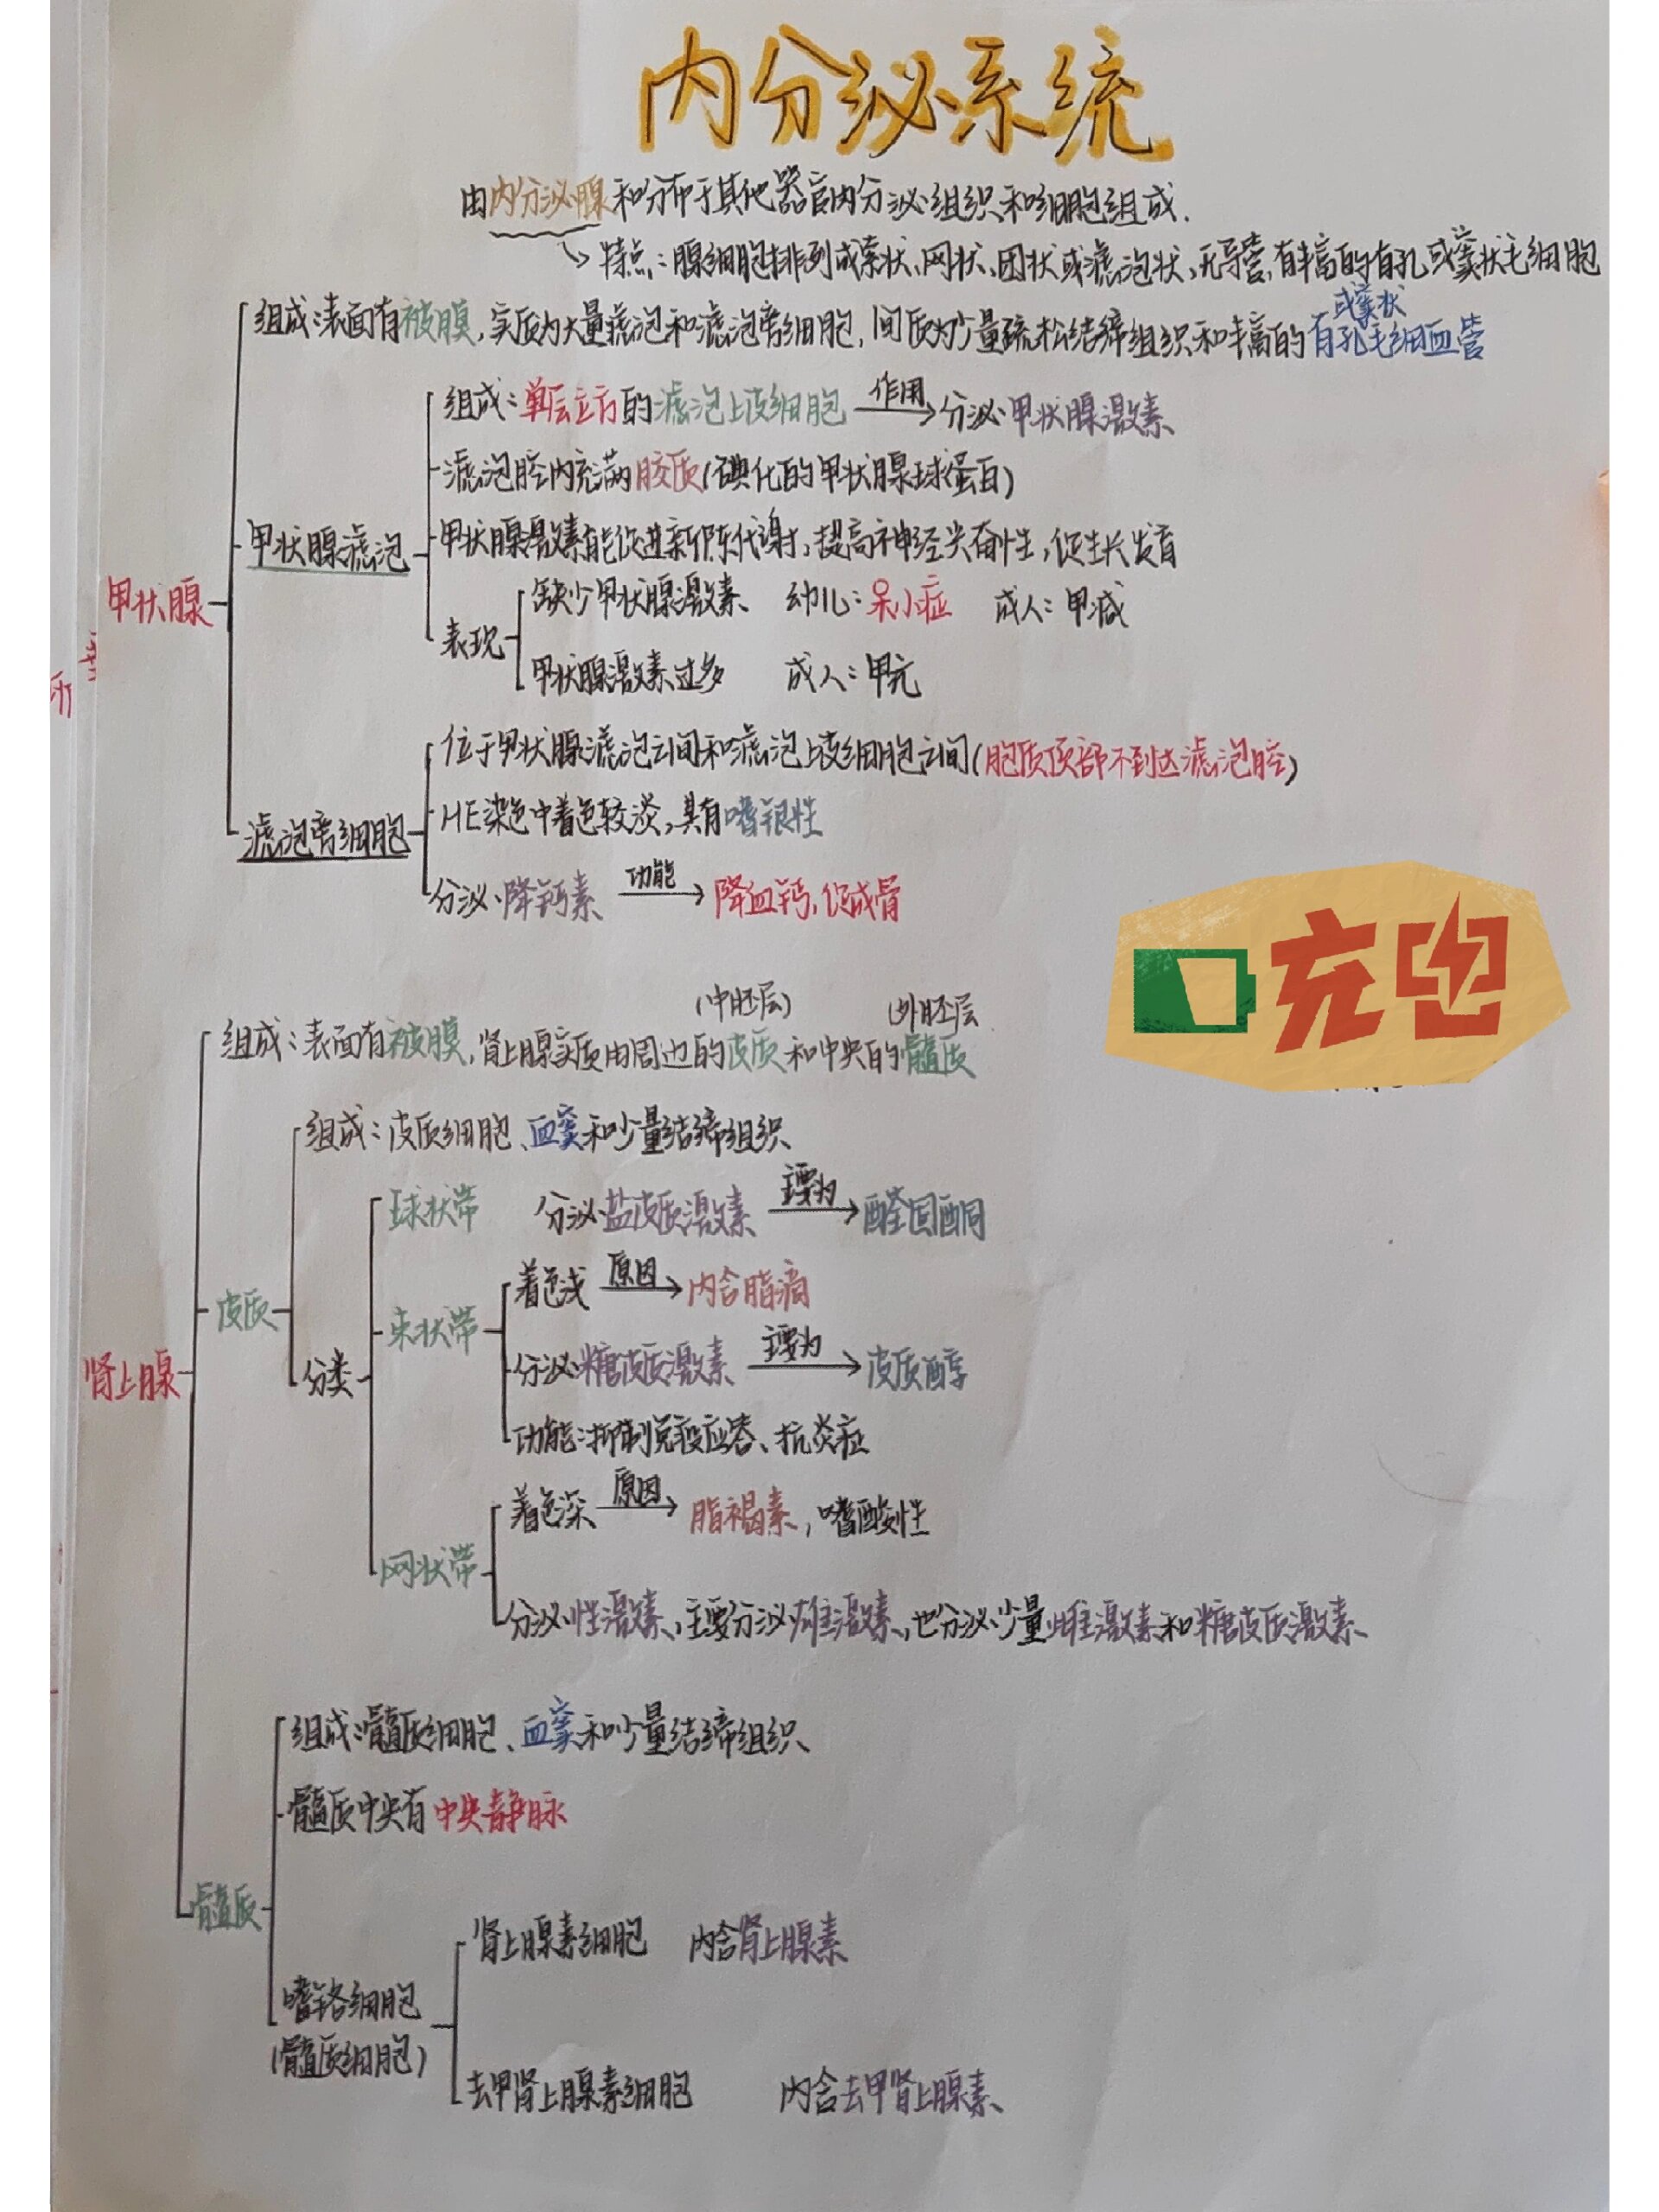 内分泌系统
由内分泌腺和分布于其他器官内分泌组织和细胞组成.
特点:腺细胞排列成索状、网状、团状或滤泡状,无导管,有丰富的有孔或窦状毛细胞
组成:表面有被膜,实质为大量滤泡和滤泡旁细胞,间质为少量疏松结缔组织和丰富的有孔毛细血管
或窦状
甲状腺
甲状腺滤泡
组成:单层立方的滤泡上皮细胞 作用 分泌甲状腺激素
滤泡腔内充满胶质(碘化的甲状腺球蛋白)
甲状腺激素能促进新陈代谢,提高神经兴奋性,促生长发育
表现
缺少甲状腺激素 幼儿:呆小症 成人:甲减
甲状腺激素过多 成人:甲亢
滤泡旁细胞
位于甲状腺滤泡之间和滤泡上皮细胞之间(胞质顶部不到达滤泡腔)
HE染色中着色较淡,具有嗜银性
分泌降钙素 功能 降血钙,促成骨
充电
(中胚层) (外胚层
组成:表面有被膜,肾上腺实质由周边的皮质和中央的髓质
肾上腺
皮质
组成:皮质细胞、血窦和少量结缔组织
分类
球状带 分泌盐皮质激素 主要为 醛固酮
束状带
着色浅 原因 内含脂滴
分泌糖皮质激素 主要为 皮质醇
功能:抑制免疫应答、抗炎症
网状带
着色深 原因 脂褐素,嗜酸性
分泌性激素,主要分泌雄激素,也分泌少量雌激素和糖皮质激素
髓质
组成:髓质细胞、血窦和少量结缔组织
髓质中央有中央静脉
嗜铬细胞
(髓质细胞)
肾上腺素细胞 内含肾上腺素
去甲肾上腺素细胞 内含去甲肾上腺素